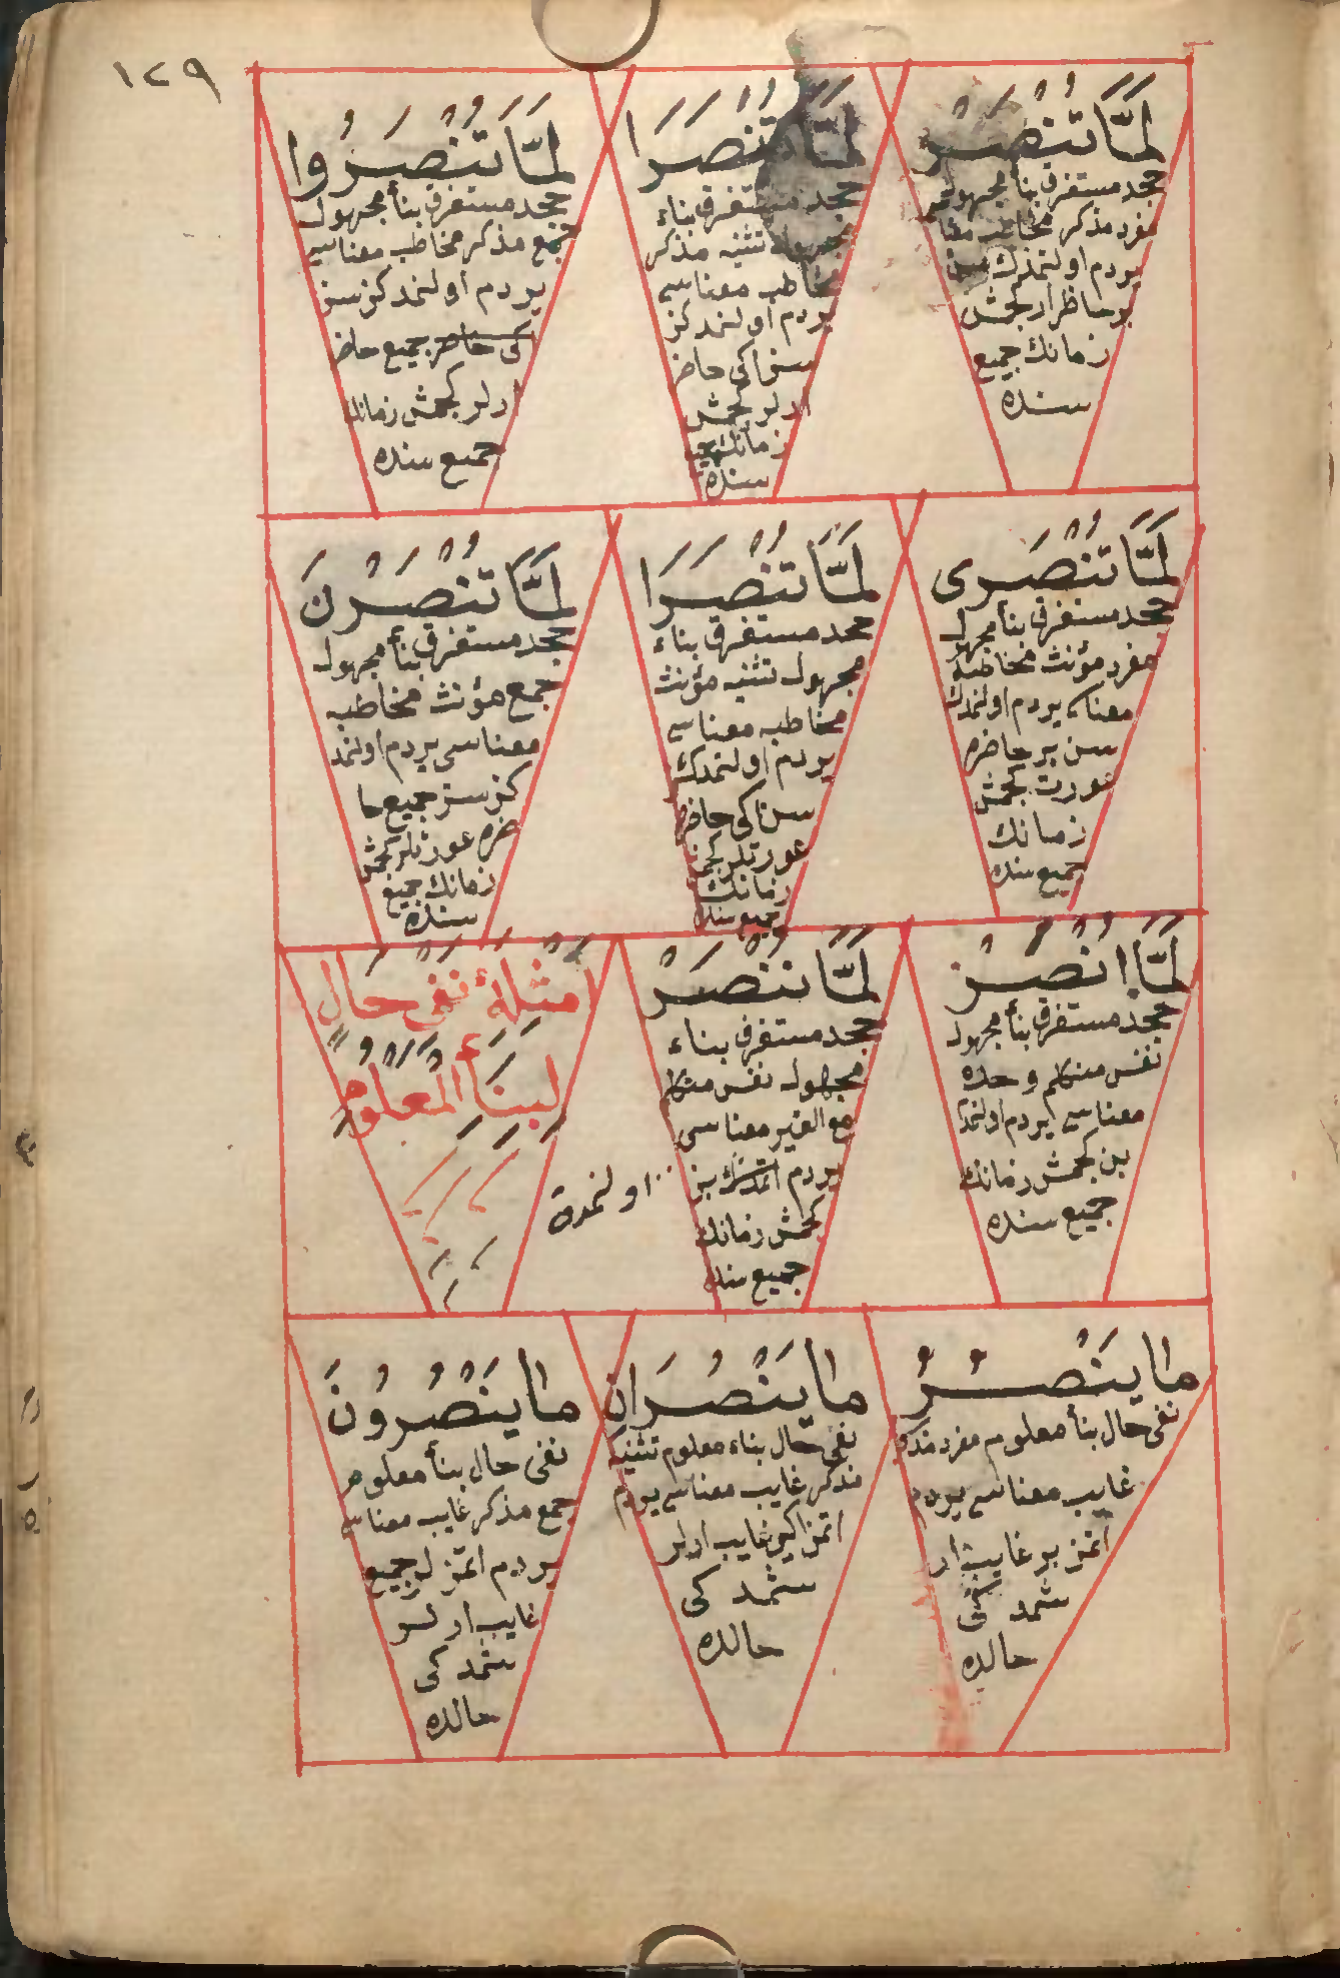 ١٢٩
لَمَّا تُنْصَرْ
جحد مستغرق بنأ مجهول
مفرد مذكر مخاطب
يردم اولنمدك سن
بر حاضر ار كچمش
زمانك جميع
سنده
لَمَّا تُنْصَرَا
جحد مستغرق بناء
مجهول تثنيه مذكر
مخاطب معناسى
يردم اولنمدكز
سز ايكى حاضر
ارلر كچمش
زمانك جميع
سنده
لَمَّا تُنْصَرُوا
جحد مستغرق بنأ مجهول
جمع مذكر مخاطب معناسى
يردم اولنمدكز سز
جميع حاضر
ارلر كچمش زمانك
جميع سنده
لَمَّا تُنْصَرِى
جحد مستغرق بنأ مجهول
مفرد مؤنث مخاطبه
معناسى يردم اولنمدك
سن بر حاضره
عورت كچمش
زمانك
جميع سنده
لَمَّا تُنْصَرَا
جحد مستغرق بناء
مجهول تثنيه مؤنث
مخاطبه معناسى
يردم اولنمدك
سز ايكى حاضره
عورتلر كچمش
زمانك
جميع سنده
لَمَّا تُنْصَرْنَ
جحد مستغرق بنأ مجهول
جمع مؤنث مخاطبه
معناسى يردم اولنمد
كز سز جميع حا
ضره عورتلر كچمش
زمانك جميع
سنده
لَمَّا اُنْصَرْ
جحد مستغرق بنأ مجهول
نفس متكلم وحده
معناسى يردم اولنمدم
بن كچمش زمانك
جميع سنده
لَمَّا نُنْصَرْ
جحد مستغرق بناء
مجهول نفس متكلم
مع الغير معناسى
يردم اتمدك بز
كچمش زمانك
جميع سنده
اولنمدق
امثلۀ نفى حال
لبنأ المعلوم
مَا يَنْصُرُ
نفى حال بنأ معلوم مفرد مذكر
غايب معناسى يردم
اتمز بر غايب ار
شمدكى
حالده
مَا يَنْصُرَانِ
نفى حال بناء معلوم تثنيه
مذكر غايب معناسى يردم
اتمز ايكى غايب ارلر
شمدكى
حالده
مَا يَنْصُرُونَ
نفى حال بنأ معلوم
جمع مذكر غايب معناسى
يردم اتمزلر جميع
غايب ارلر
شمدكى
حالده